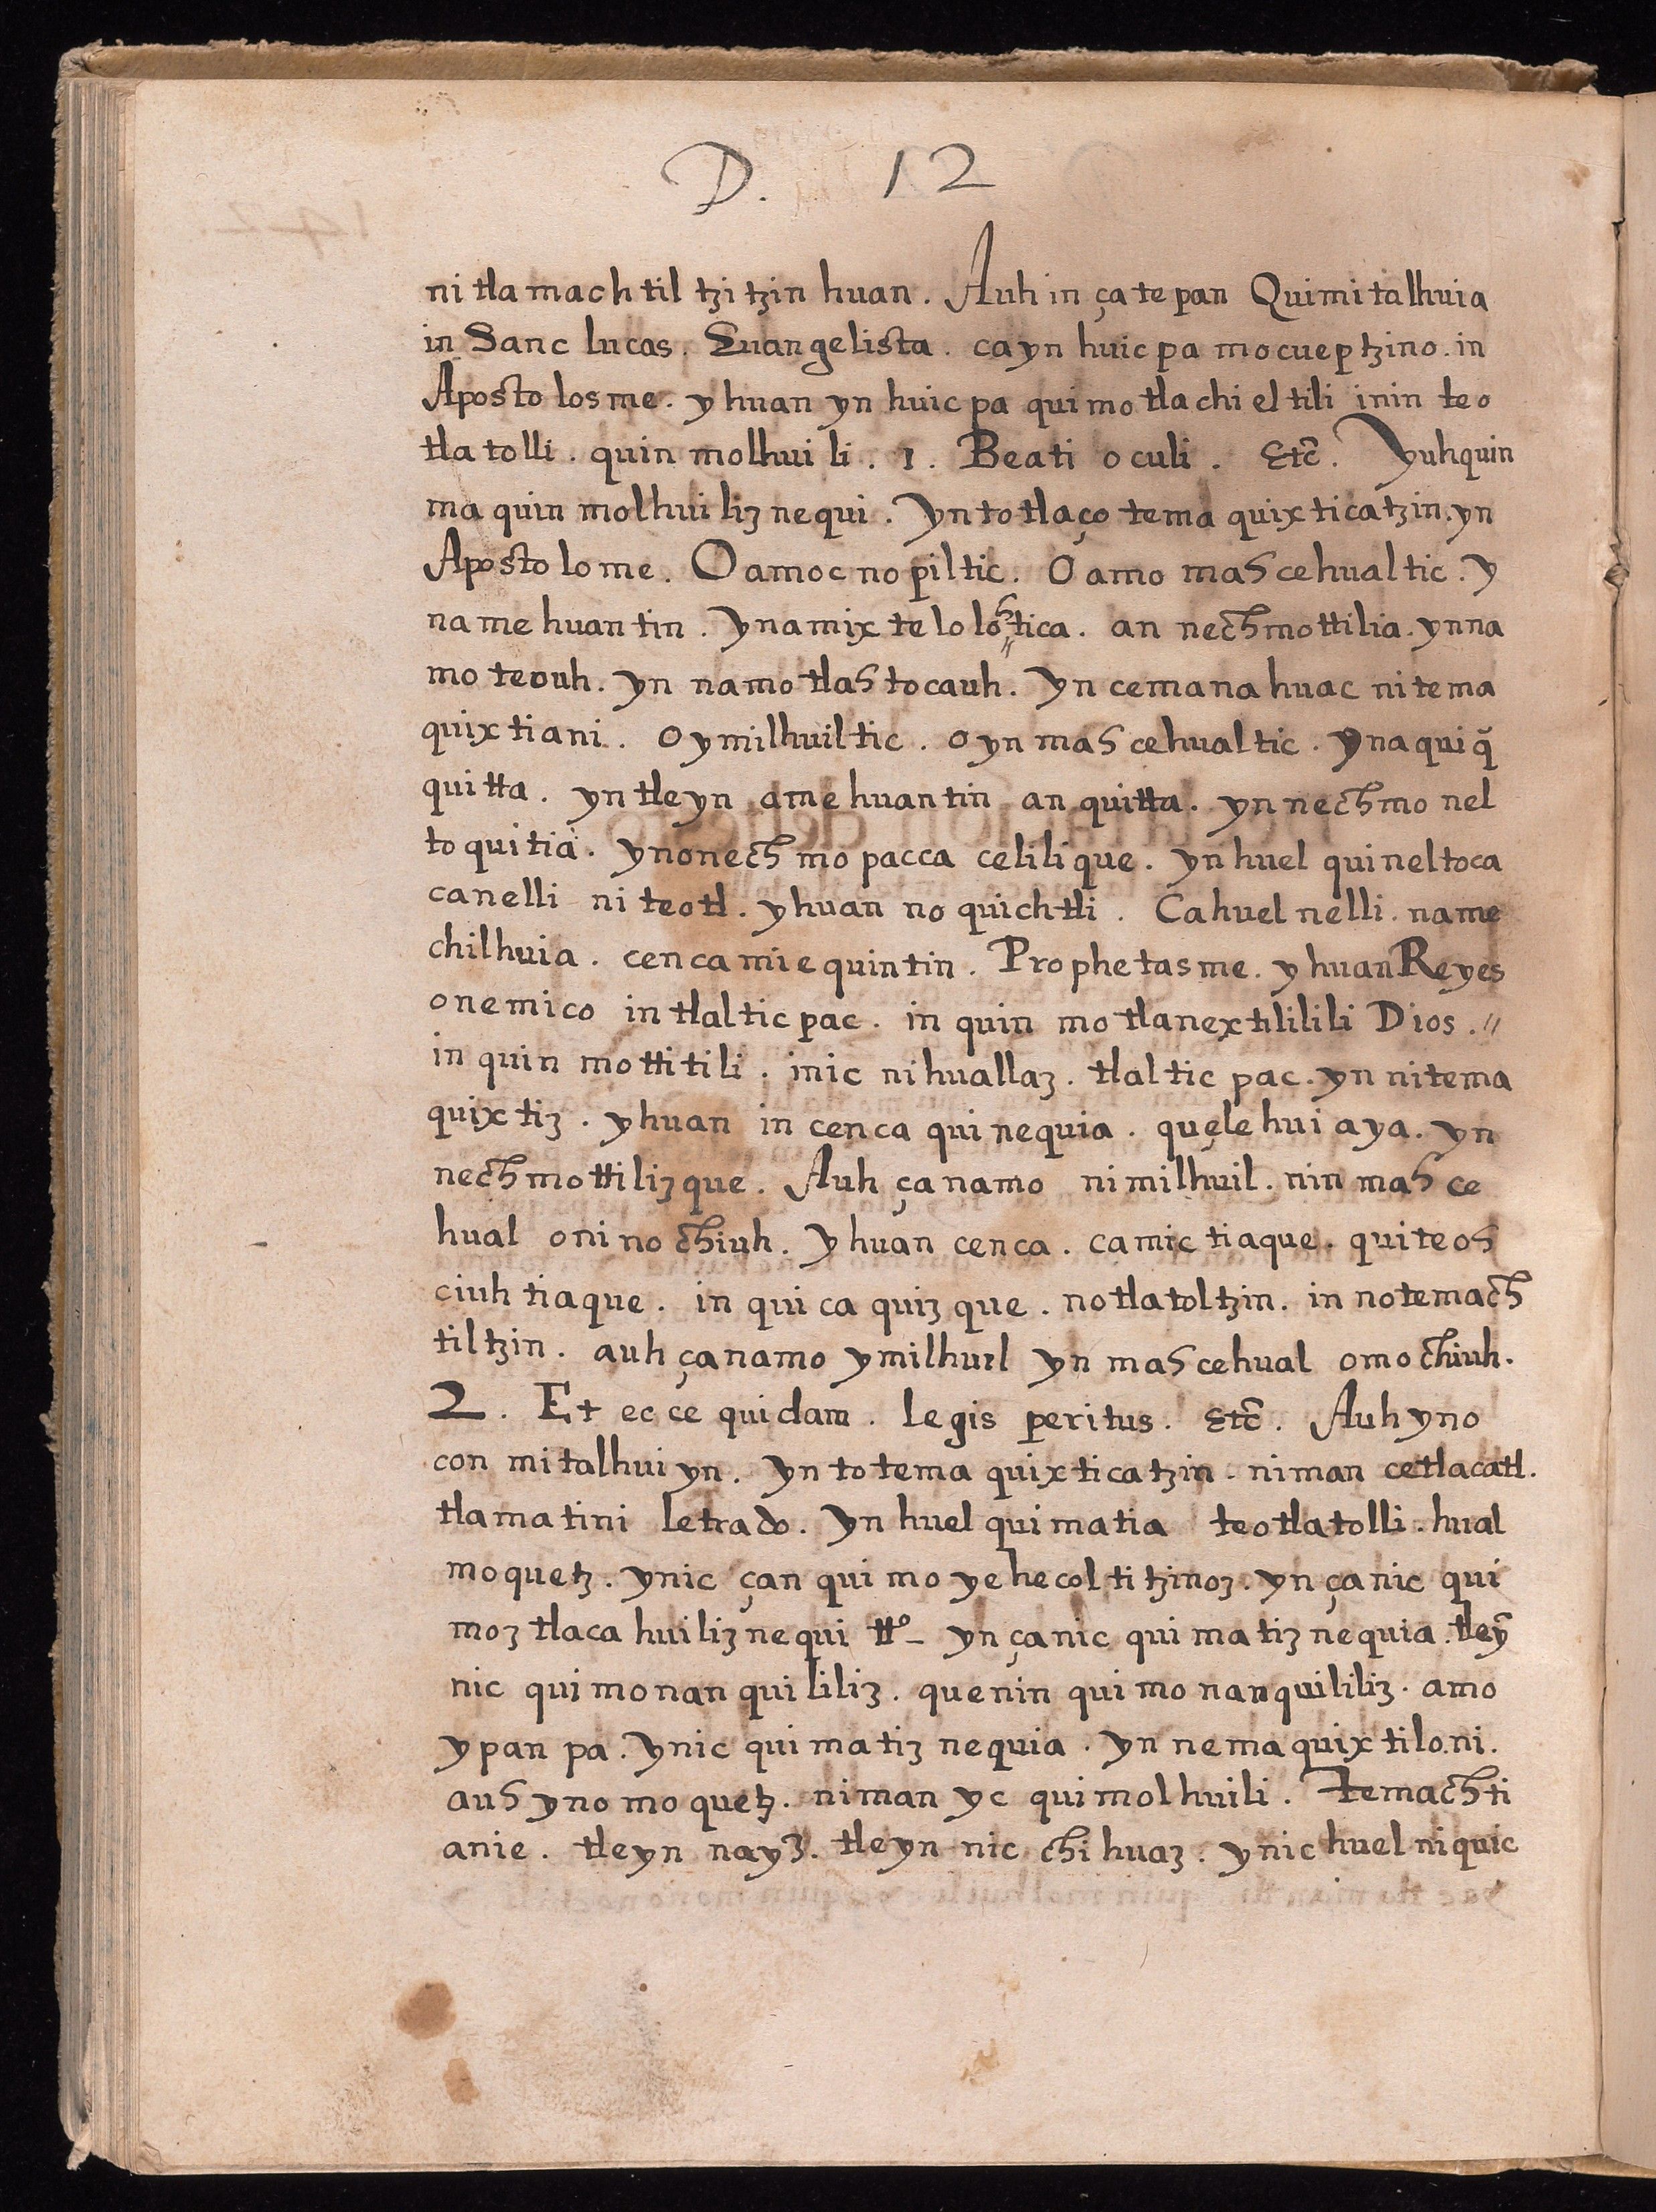 D. 12
ni tla mach til tzi tzin huan. Auh in ça te pan Quimitalhuia
in Sanc lucas. Euangelista. ca yn huic pa mo cuep tzino. in
Aposto los me. y huan yn huic pa qui mo tla chi el tili inin te o
tla tolli. quin molhui li. 1. Beati oculi. Etc̃. Yuhquin
ma quin molhui liz ne qui. Yn to tlaço tema quix ti ca tzin. yn
Aposto lo me. O amoc no pil tic. O amo mahcehual tic. Y
na me huan tin. Yn amix te lo lohtica. an nechmottilia. yn na
mo teouh. yn namo tlah to cauh. Yn cemana huac ni tema
quix tiani. O ymilhuil tic. o yn mah cehual tic. yn aqui q̃
quitta. yn tle yn ame huan tin an quitta. yn nech mo nel
to qui tia. yn o nech mo pacca celili que. yn huel qui nel toca
ca nelli ni teotl. y huan no quichtli. Ca huel nelli. name
chilhuia. cenca mie quin tin. Prophetas me. y huan Reyes
o nemi co in tlal tic pac. in quin mo tlanextililili Dios. //
in quin motti ti li. inic ni huallaz. tlal tic pac. yn ni tema
quix tiz. y huan in cenca qui nequia. quęle hui aya. yn
nech motti liz que. Auh ça namo ni milhuil. nin mah ce
hual oni no chiuh. Y huan cenca. ca mic tiaque. qui te oh
ciuh tiaque. in qui ca quiz que. no tla tol tzin. in no temach
til tzin. auh ça namo y milhuil yn mah cehual omo chiuh.
2. Et ec ce quidam. legis peritus. Etc̃. Auh yn o
con mi talhui yn. Yn to tema quix ti ca tzin. niman ce tlacatl.
tla ma tini letrado. Yn huel qui matia teo tla tolli. hual
mo quetz. ynic çan qui mo ye he col ti tzinoz. yn ça nic qui
moz tlaca huiliz ne qui tt⁰_ yn ça nic qui ma tiz ne quia. tleỹ
nic qui mo nan qui liliz. que nin qui mo nanquililiz. amo
y pan pa. Ynic qui ma tiz ne quia. yn ne ma quix tilo. ni.
auh yn o mo quetz. niman yc qui mol huili. Temachti
anie. tle yn nayz. tle yn nic chi huaz. ynic huel ni quic